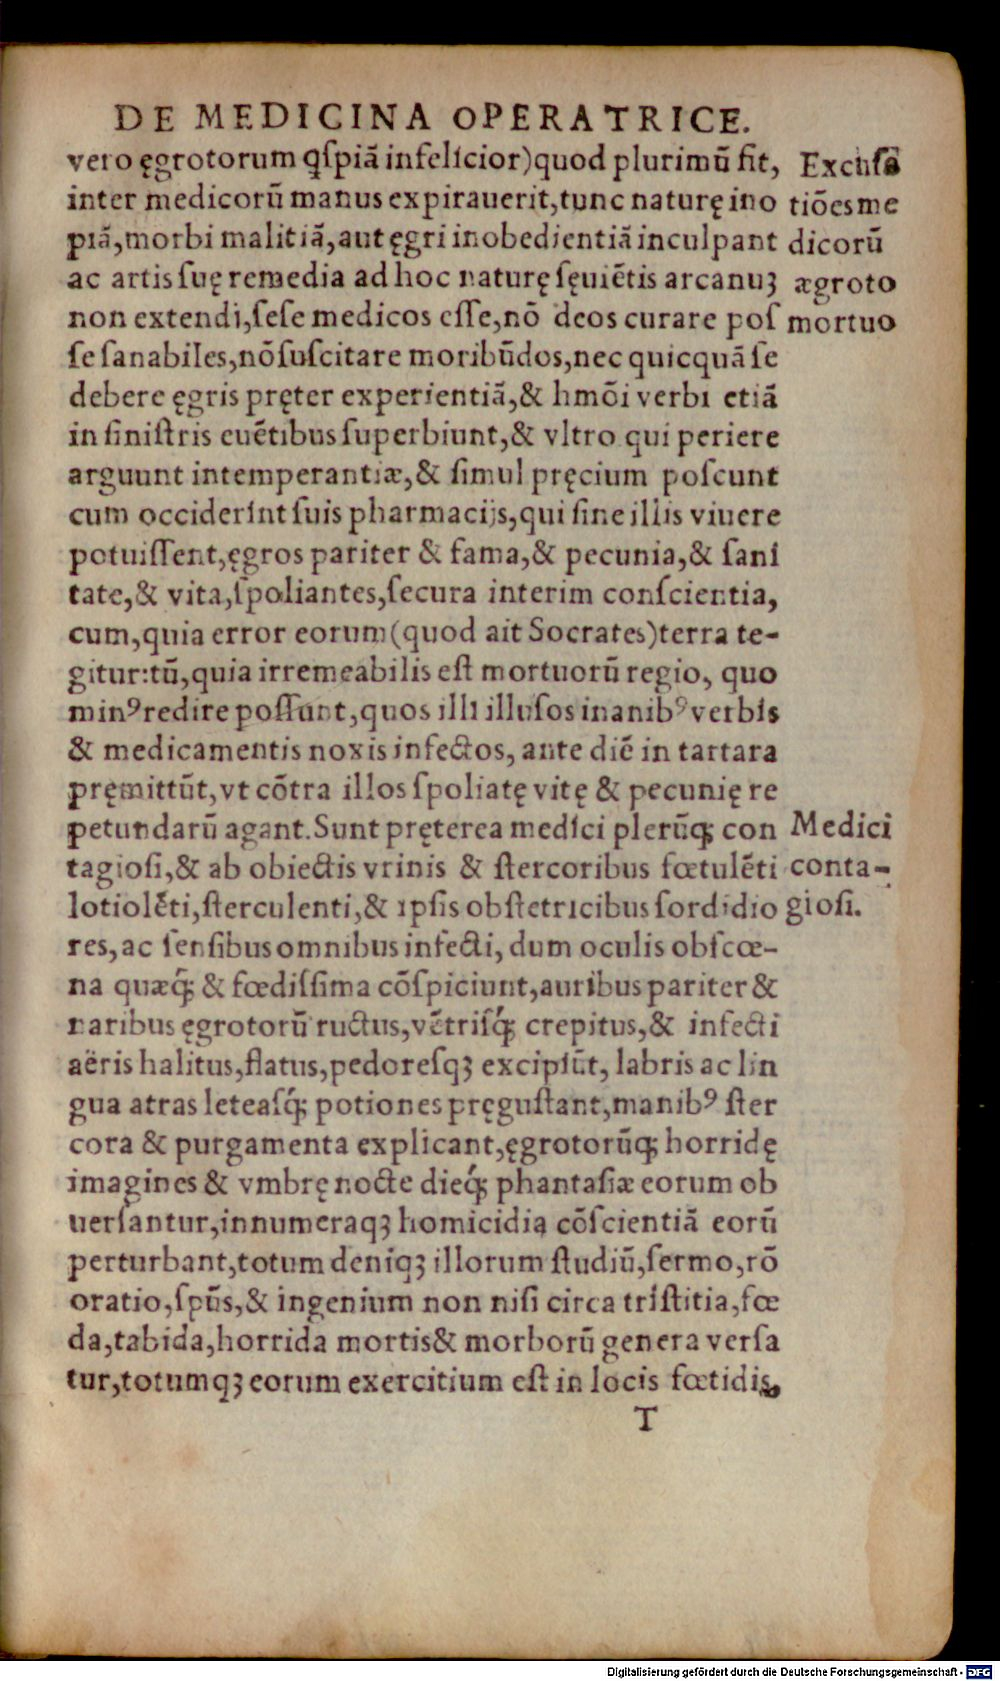 DE MEDICINA OPERATRICE.
vero ęgrotorum q̨spiā infelicior)quod plurimū fit,
inter medicorū manus expirauerit,tunc naturę ino
piā,morbi malitiā,aut ęgri inobedientiā inculpant
ac artis suę remedia ad hoc naturę sęuiētis arcanuꝫ
non extendi,sese medicos esse,nō deos curare pos
se sanabiles,nō suscitare moribūdos,nec quicquā se
debere ęgris pręter experientiā,& hmōi verbi etiā
in sinistris euētibus superbiunt,& vltro qui periere
arguunt intemperantiæ,& simul pręcium poscunt
cum occiderint suis pharmacijs,qui sine illis viuere
potuissent,ęgros pariter & fama,& pecunia,& sani
tate,& vita,spoliantes,secura interim conscientia,
cum,quia error eorum(quod ait Socrates)terra te-
gitur:tū,quia irremeabilis est mortuorū regio, quo
minꝰ redire possunt,quos illi illusos inanibꝰ verbis
& medicamentis noxis infectos, ante diē in tartara
pręmittūt,vt cōtra illos spoliatę vitę & pecunię re
petundarū agant.Sunt pręterea medici plerūq; con
tagiosi,& ab obiectis vrinis & stercoribus fœtulēti
lotiolēti,sterculenti,& ipsis obstetricibus sordidio
res,ac sensibus omnibus infecti, dum oculis obscœ-
na quæq; & fœdissima cōspiciunt,auribus pariter &
naribus ęgrotorū ructus,vētrisq; crepitus,& infecti
aëris halitus,flatus,pedoresqꝫ excipiūt, labris ac lin
gua atras leteasq; potiones pręgustant,manibꝰ ster
cora & purgamenta explicant,ęgrotorūq; horridę
imagines & vmbrę nocte dieq; phantasiæ eorum ob
uersantur,innumeraqꝫ homicidia cōscientiā eorū
perturbant,totum deniqꝫ illorum studiū,sermo,rō
oratio,spūs,& ingenium non nisi circa tristitia,fœ
da,tabida,horrida mortis & morborū genera versa
tur,totumqꝫ eorum exercitium est in locis fœtidis,
T
Excusa
tiōes me
dicorū
ægroto
mortuo
Medici
conta-
giosi.
Digitalisierung gefördert durch die Deutsche Forschungsgemeinschaft - DFG